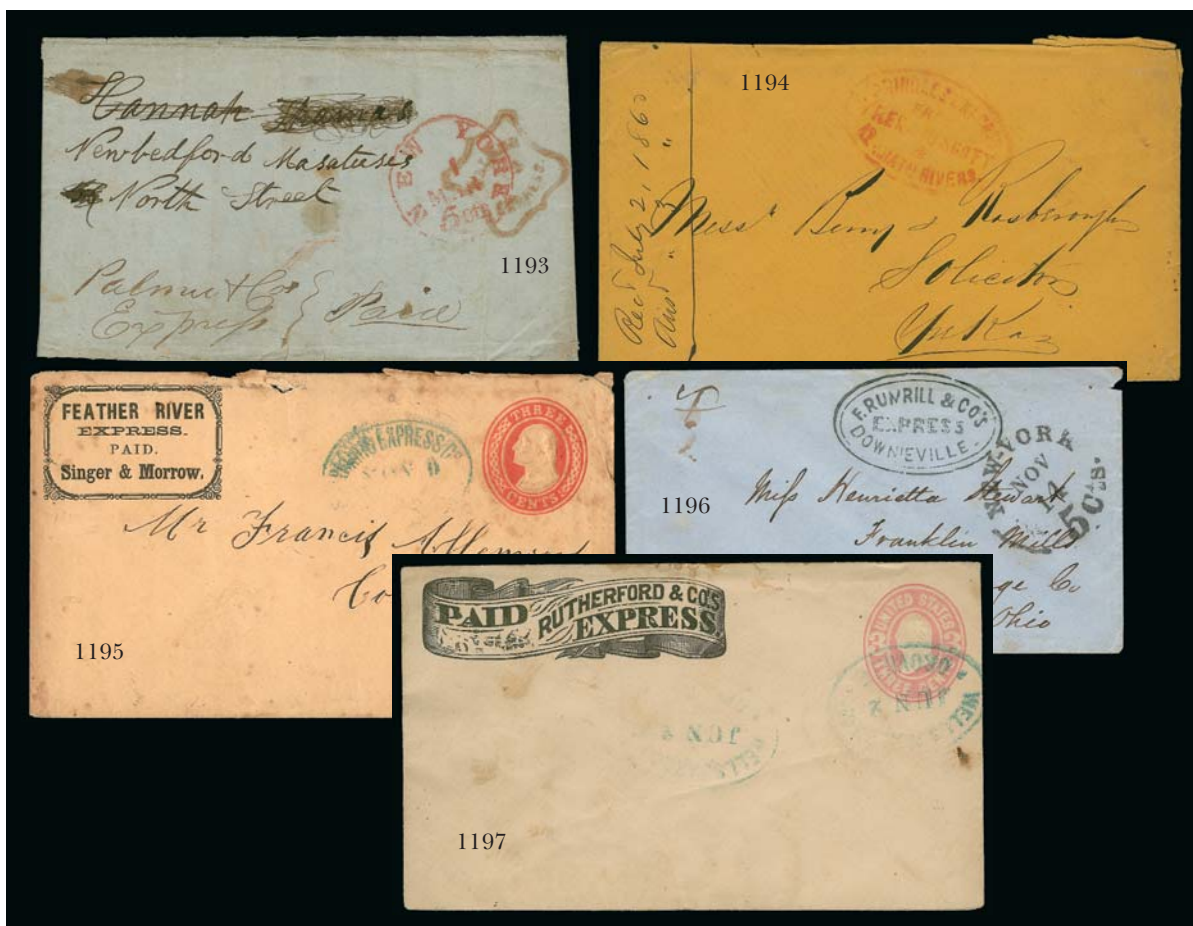 1193
Hannah
Newbedford Masatuses
North Street
NEW YORK
Palmer & Co
Express } Paid
1194
KLAMATH RIVERS
Rec'd July 21, 1860
Ans'd " 23 "
Mess's Berry & Rosborough
Solicitors
Yreka
1195
FEATHER RIVER
EXPRESS.
PAID.
Singer & Morrow.
EXPRESS CO
THREE
CENTS
Mr Francis
Co
1196
F. RUMRILL & CO'S
EXPRESS
DOWNIEVILLE
NEW-YORK
NOV
5 Cts.
Miss Henrietta Stewart
Franklin Mills
ge Co
Ohio
1197
PAID
RUTHERFORD & CO'S
EXPRESS
UNITED STATES
JUN 2
WELLS
JUN
WELLS